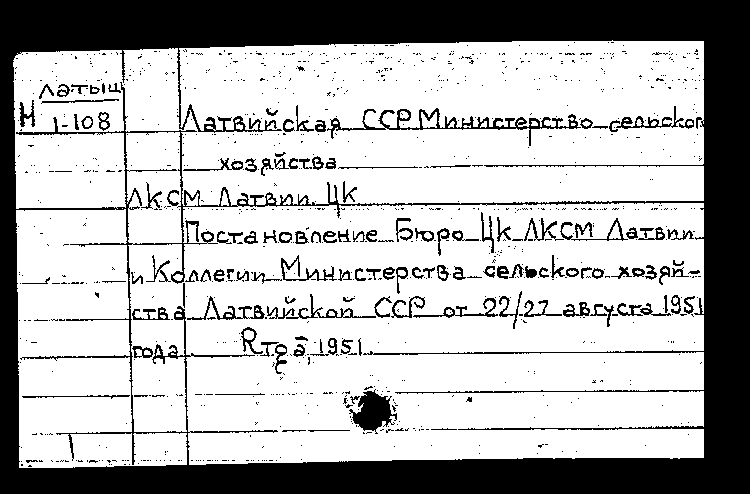 латыш
Н 1-108
Латвийская ССР Министерство сельского
хозяйства
ЛКСМ Латвии. ЦК
Постановление Бюро ЦК ЛКСМ Латвии
и Коллегии Министерства сельского хозяй-
ства Латвийской ССР от 22/27 августа 1951
года. 1951.